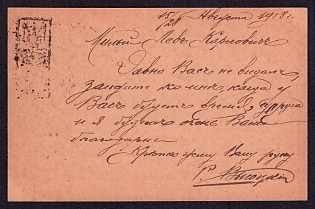 15/28 Августа 1918 г.
Милый Левъ Карловичъ
Давно Васъ не видалъ,
зайдите ко мнѣ, когда у
Васъ будетъ время,
и я будемъ очень Вамъ
благодарны
Крѣпко жму Вашу руку
Р.